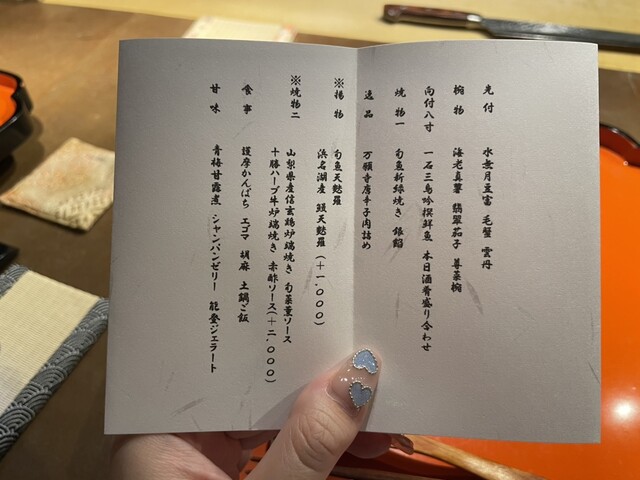 先付　水無月豆富　毛蟹　雲丹
椀物　海老真薯　翡翠茄子　蓴菜椀
向付八寸　一石三鳥吟撰鮮魚　本日酒肴盛り合わせ
焼物一　旬魚新緑焼き　銀餡
逸品　万願寺唐辛子肉詰め
※揚物　旬魚天麩羅
浜名湖産　鰻天麩羅（＋一、０００）
※焼物二　山梨県産信玄鶏炉端焼き　旬菜薫ソース
十勝ハーブ牛炉端焼き　赤酢ソース（＋二、０００）
食事　護摩かんぱち　エゴマ　胡麻　土鍋ご飯
甘味　青梅甘露煮　シャンパンゼリー　能登ジェラート